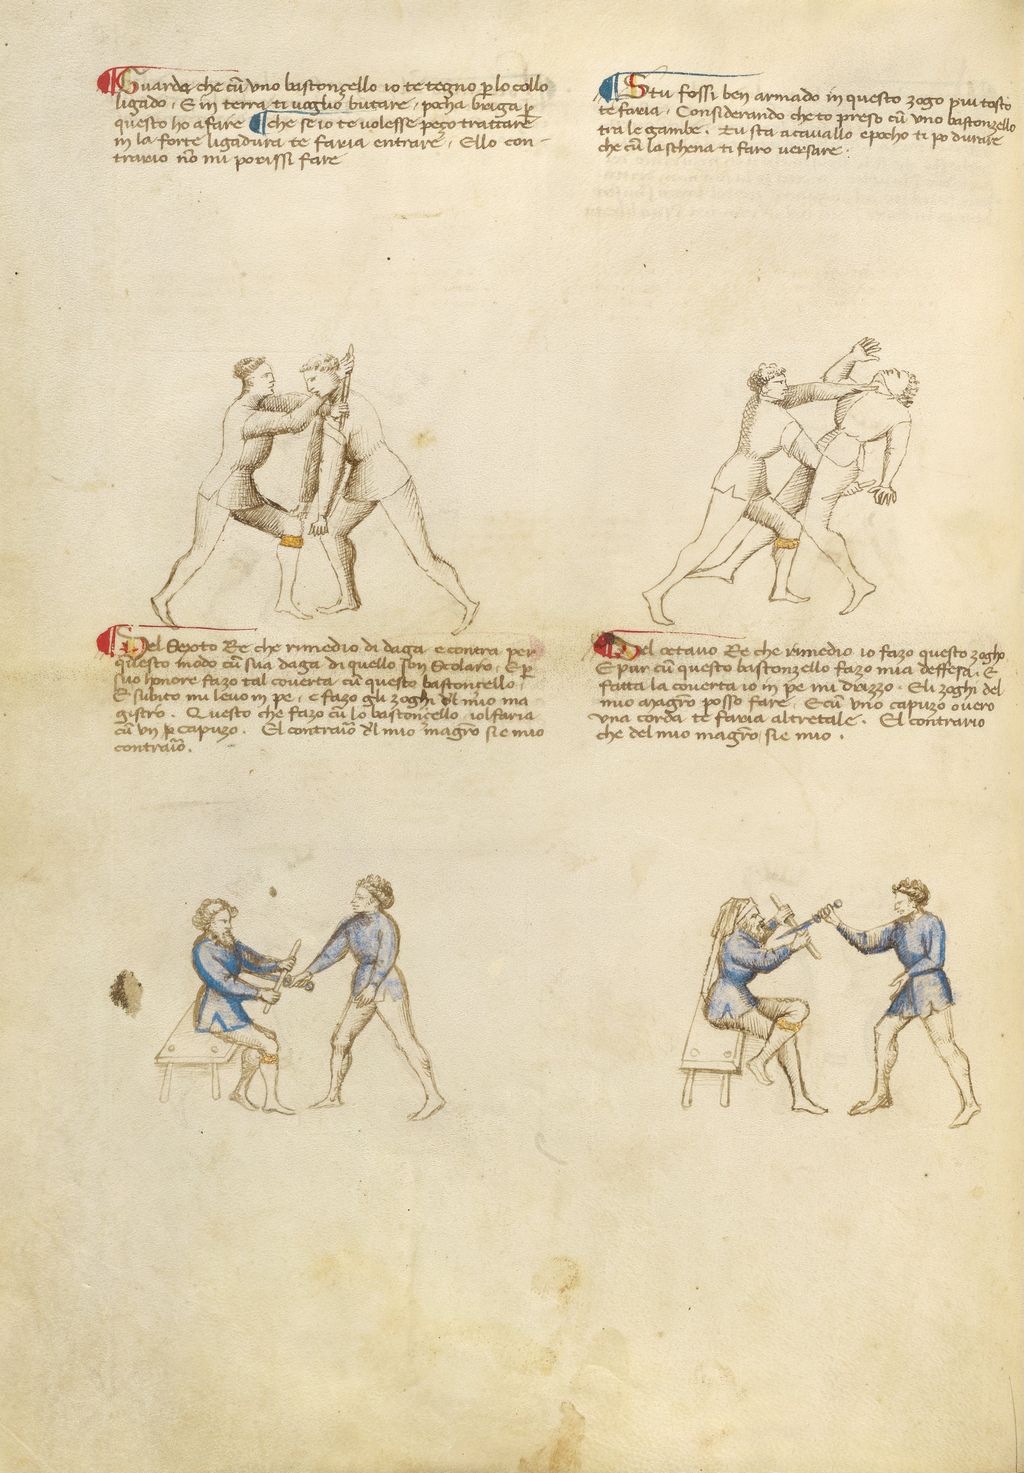 Guarda che cū uno bastonçello io te tegno p lo collo
ligado. E in terra ti voglio butare, pocha briga p
questo ho a fare che se io te volesse peço trattare
in la forte ligadura te faria entrare. Ello con-
trario nō mi porissi fare
Stu fossi ben armado in questo zogo piu tosto
te faria. Considerando che to preso cū uno bastonzello
tra le gambe. Tu sta acavallo e pocho ti po durare
che cū la schena ti faro versare.
Del Sexto Re che rimedio di daga e contra per
questo modo cū sua daga di quello son Scolaro. E p
suo honore fazo tal coverta cū questo bastoncello.
E subito mi levo in pe, e fazo gli zoghi dl mio ma
gistro. Questo che fazo cū lo bastonçello, io l faria
cū un capuzo. El contraio dl mio magro si e mio
contraio.
Del octavo Re che rimedio io fazo questo zogho
E pur cū questo bastonzello fazo mia deffesa. E
fatta la coverta io in pe mi drizzo. Eli zoghi del
mio magro posso fare. E cū uno capuzo overo
una corda te faria altretale. El contrario
che del mio magro si e mio.